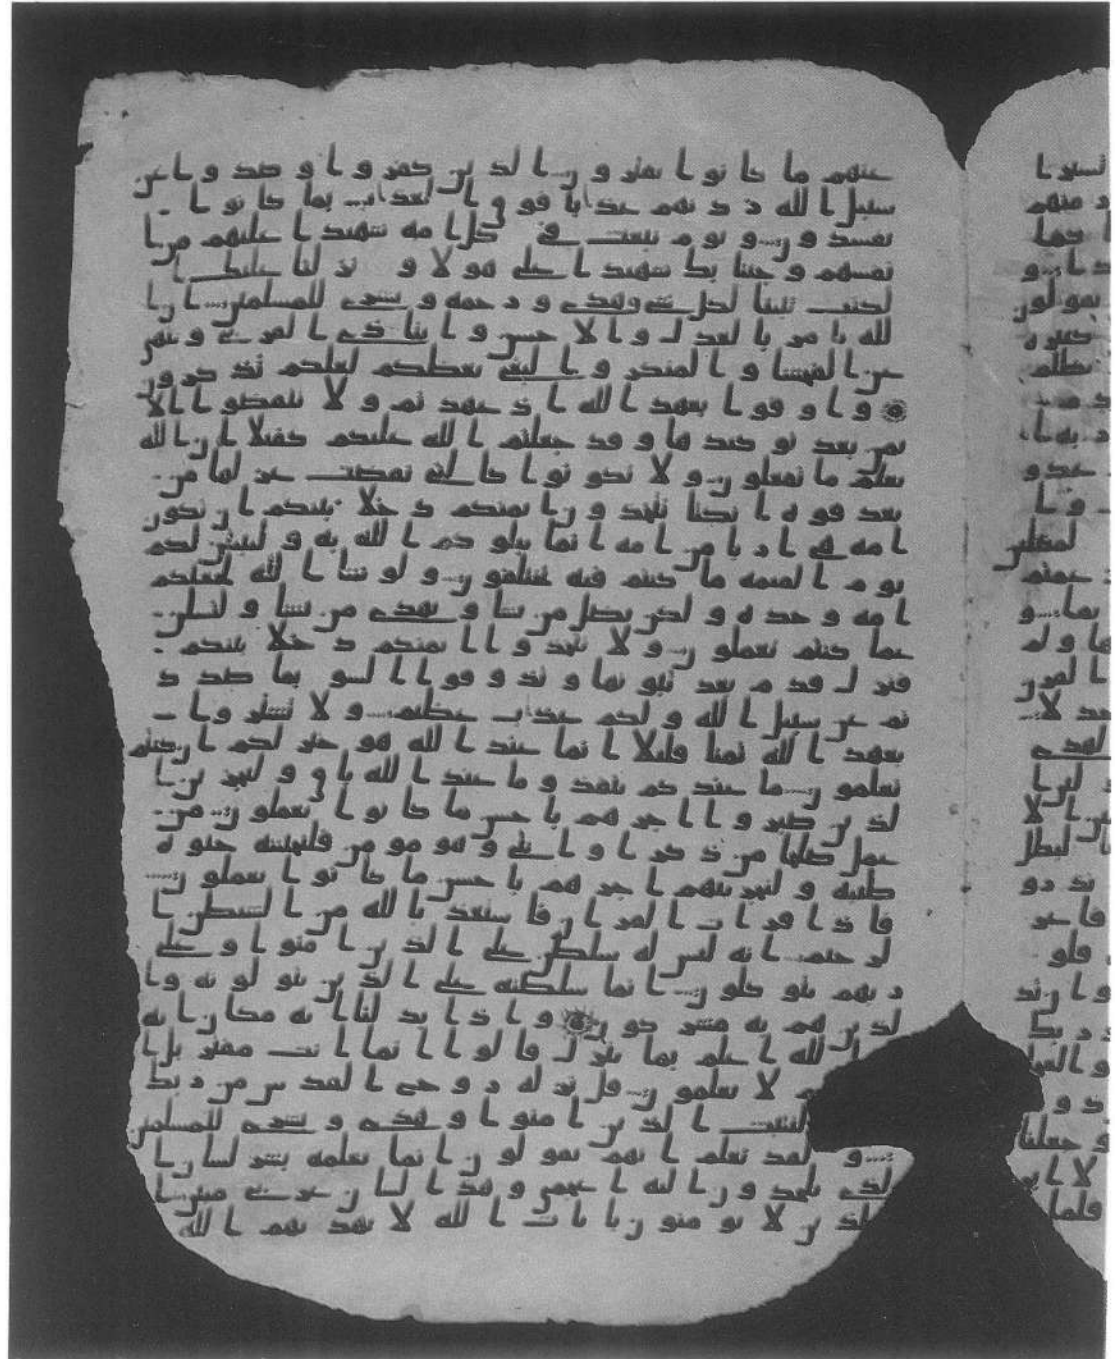 عنهم ما كانوا يفترون الذين كفروا وصدوا عن
سبيل الله زدنهم عذابا فوق العذاب بما كانوا
يفسدون ويوم نبعث في كل امه شهيدا عليهم من ا
نفسهم وجينا بك شهيدا على هولا و نزلنا عليك ا
لكتب تبينا لكل شي وهدى ورحمه وبشرى للمسلمين ان ا
لله يامر بالعدل والاحسن وايتاي ذي القربى وينهى
عن الفحشا والمنكر والبغي يعظكم لعلكم تذكرون
واوفوا بعهد الله اذا عهدتم ولا تنقضوا الا
يمن بعد توكيدها وقد جعلتم الله عليكم كفيلا ان الله
يعلم ما تفعلون ولا تكونوا كالتي نقضت غزلها من
بعد قوه انكثا تتخذون ايمنكم دخلا بينكم ان تكون
امه هي اربا من امه انما يبلوكم الله به وليبينن لكم
يوم القيمه ما كنتم فيه تختلفون ولو شا الله لجعلكم
امه وحده ولكن يضل من يشا ويهدي من يشا ولتسلن
عما كنتم تعملون ولا تتخذوا ايمنكم دخلا بينكم
فتزل قدم بعد ثبوتها وتذوقوا السو بما صدد
تم عن سبيل الله ولكم عذاب عظيم ولا تشتروا
بعهد الله ثمنا قليلا انما عند الله هو خير لكم ان كنتم
تعلمون ما عندكم ينفد وما عند الله باق ولنجزين ا
لذين صبروا اجرهم باحسن ما كانوا يعملون من
عمل صلحا من ذكر او انثى وهو مومن فلنحيينه حيوه
طيبه ولنجزينهم اجرهم باحسن ما كانوا يعملون
فاذا قرات القران فاستعذ بالله من الشيطن ا
لرجيم انه ليس له سلطن على الذين امنوا وعلى
ربهم يتوكلون انما سلطنه على الذين يتولونه وا
لذين هم به مشركون واذا بدلنا ايه مكان ايه
الله اعلم بما ينزل قالوا انما انت مفتر بل ا
لا يعلمون قل نزله روح القدس من ربك
ليثبت الذين امنوا وهدى وبشرى للمسلمين
ولقد نعلم انهم يقولون انما يعلمه بشر لسان ا
لذي يلحدون اليه اعجمي وهذا لسان عربي مبين ا
لذين لا يومنون بايات الله لا يهديهم الله